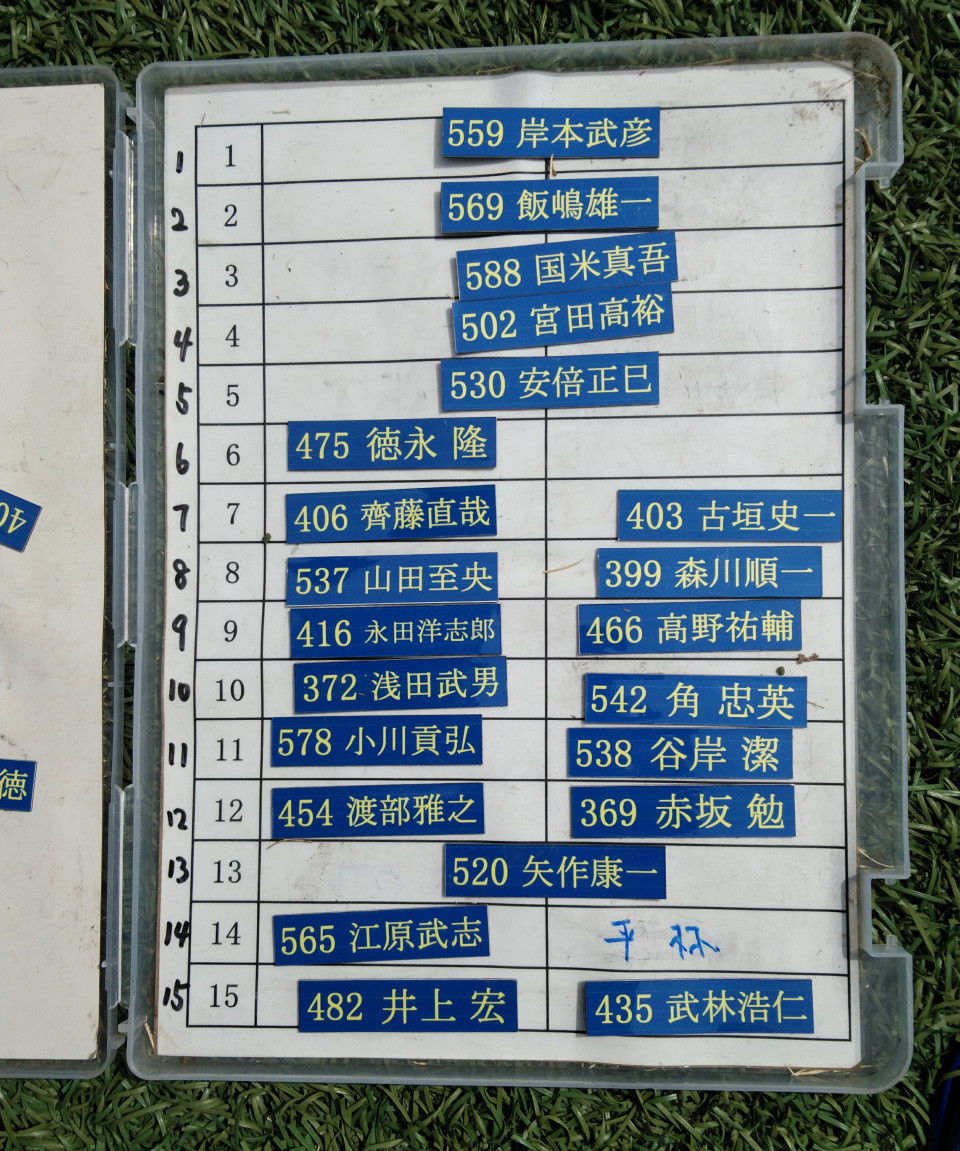 1 1 559 岸本武彦
2 2 569 飯嶋雄一
3 3 588 国米真吾
4 4 502 宮田高裕
5 5 530 安倍正巳
6 6 475 徳永 隆
7 7 406 齊藤直哉 403 古垣史一
8 8 537 山田至央 399 森川順一
9 9 416 永田洋志郎 466 高野祐輔
10 10 372 浅田武男 542 角 忠英
11 11 578 小川貢弘 538 谷岸 潔
12 12 454 渡部雅之 369 赤坂 勉
13 13 520 矢作康一
14 14 565 江原武志 平
15 15 482 井上 宏 435 武林浩仁
徳